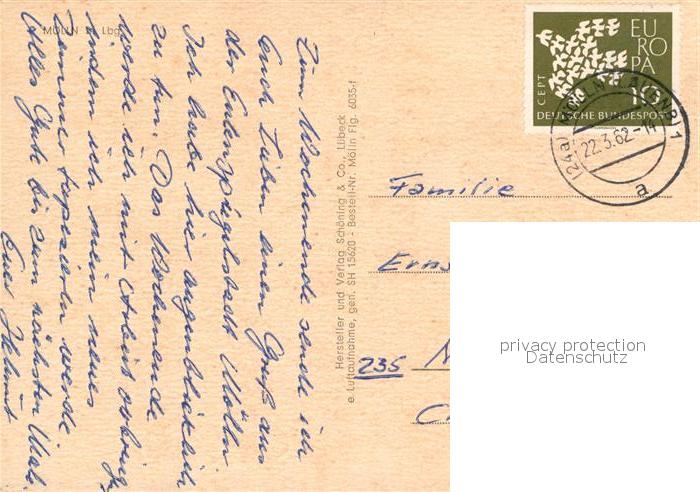 MÖLLN i. Lbg.
Zum Wochenende sende ich
Euch Lieben einen Gruß aus
der Eulenspiegelstadt Mölln
Ich habe hier augenblicklich
zu tun. Das Wochenende
werde ich mit Arbeit verbringen
indem ich mein neues
Zimmer tapezieren werde.
Alles Gute bis zum nächsten Mal.
Euer Helmut
Hersteller und Verlag Schöning & Co., Lübeck
e. Luftaufnahme, gen. SH 15620 - Bestell-Nr. Mölln Flg. 6035-f
EUROPA
CEPT
10
DEUTSCHE BUNDESPOST
(24a) MÖLLN (LAUENB) 1
22.3.62
a
Familie
Erns
235
privacy protection
Datenschutz